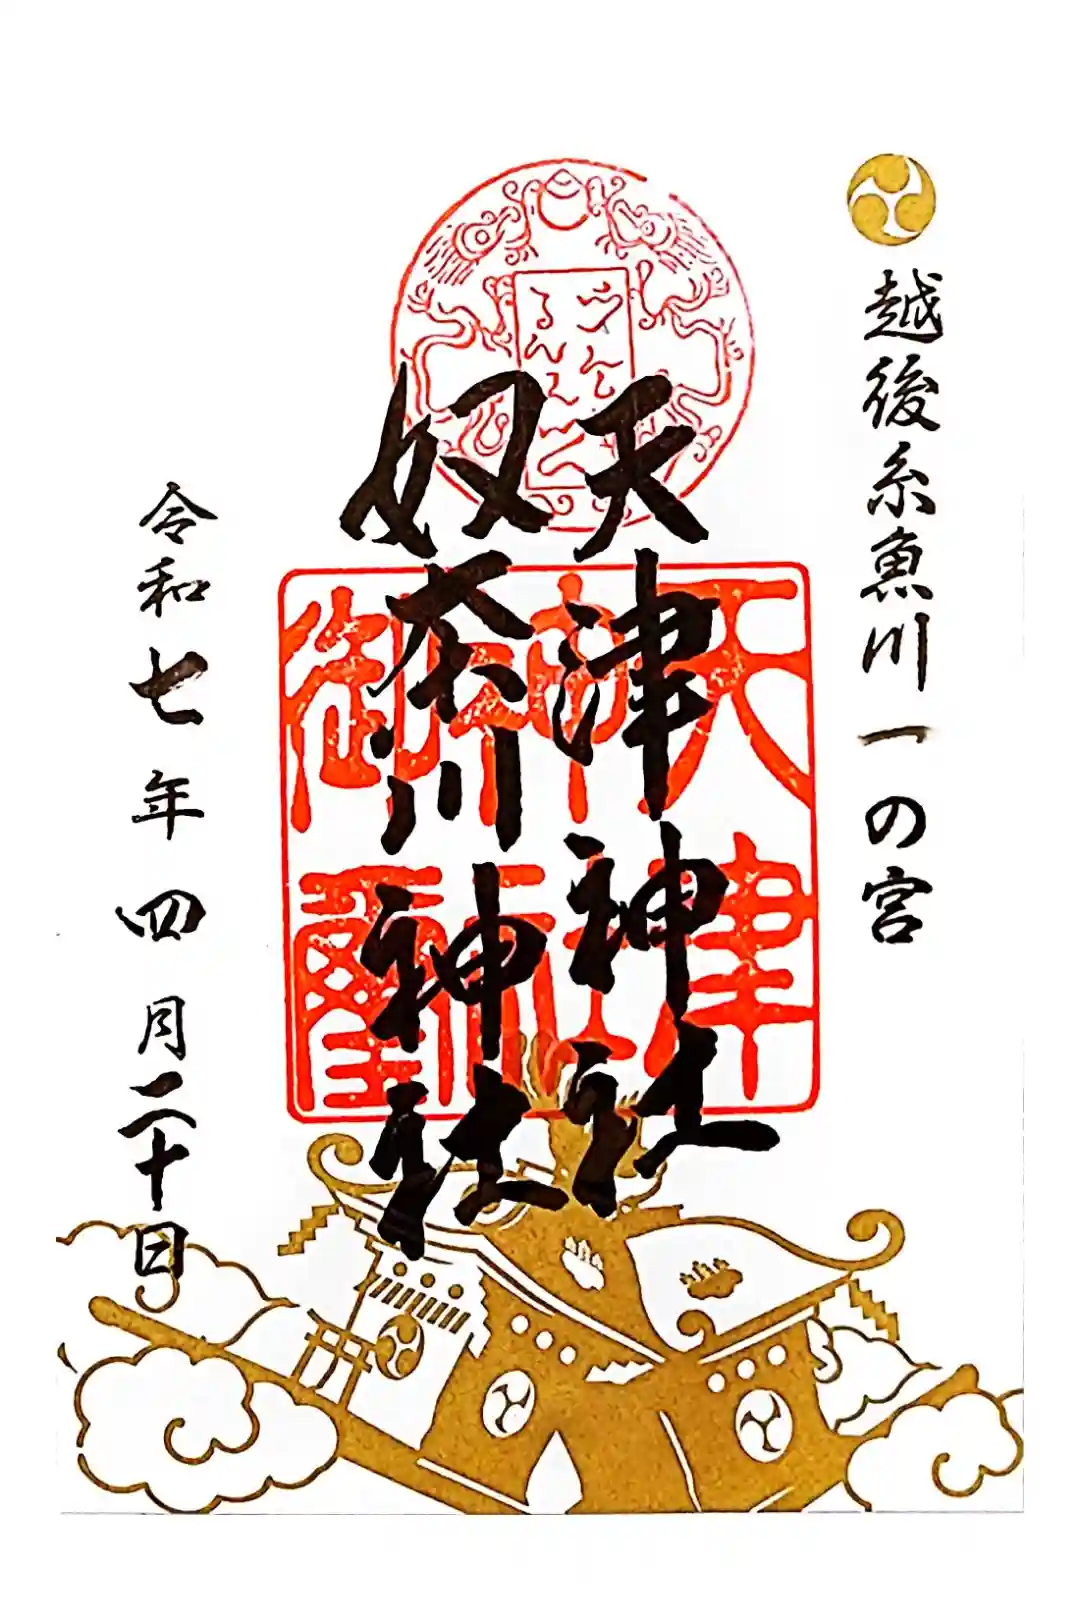 越後糸魚川一の宮
天津神社
奴奈川神社
天津
神社
御璽
令和七年四月二十日